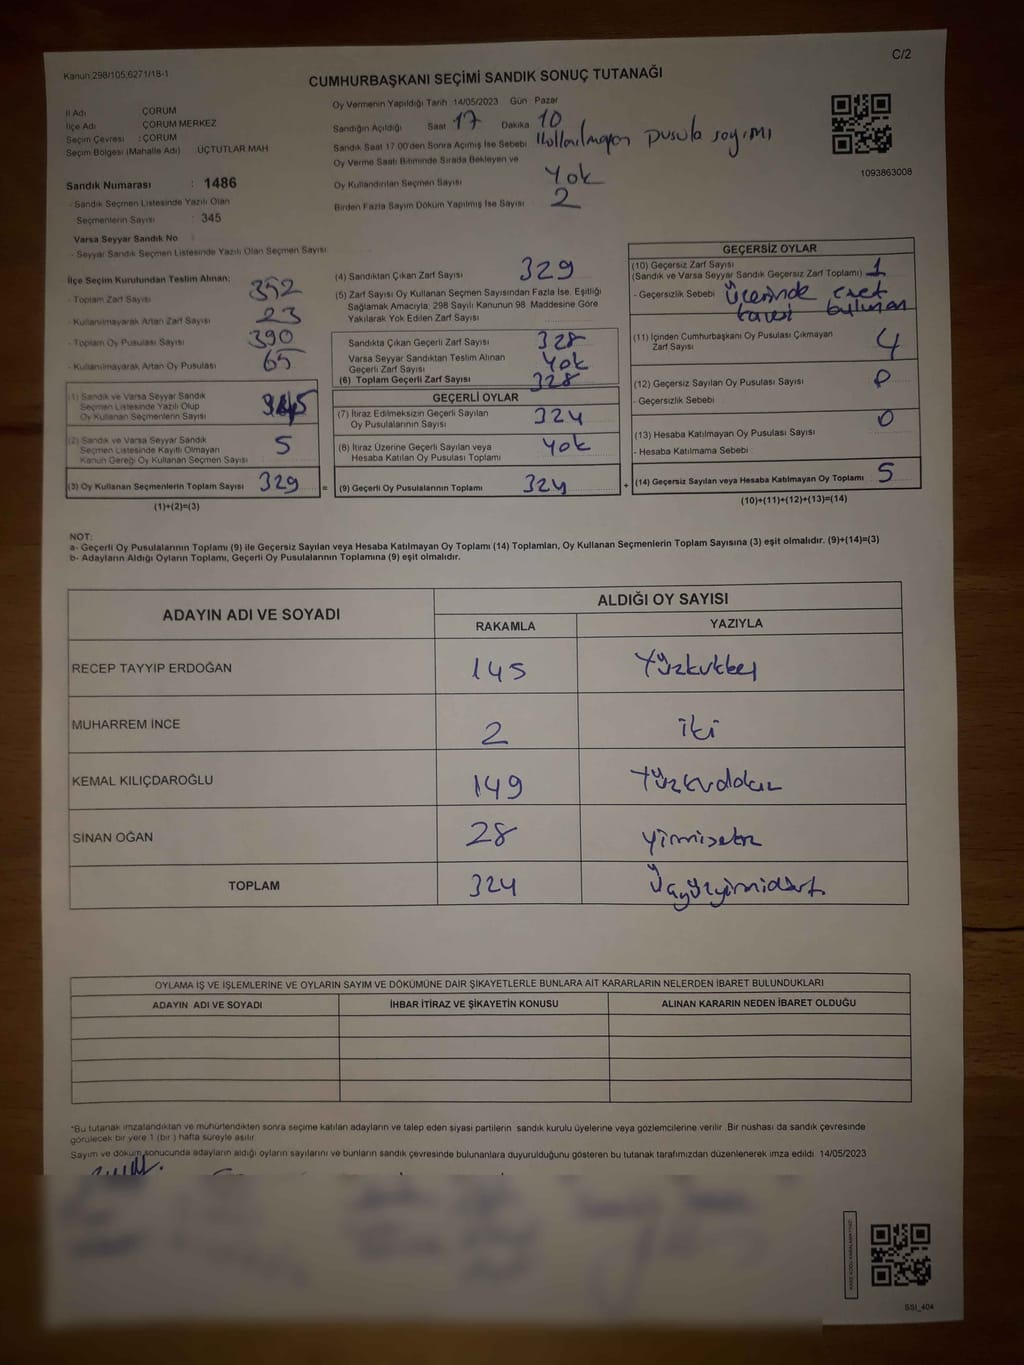 C/2
Kanun:298/105;6271/18-1
CUMHURBAŞKANI SEÇİMİ SANDIK SONUÇ TUTANAĞI
İl Adı ÇORUM
İlçe Adı ÇORUM MERKEZ
Seçim Çevresi : ÇORUM
Seçim Bölgesi (Mahalle Adı) ÜÇTUTLAR MAH
Sandık Numarası : 1486
- Sandık Seçmen Listesinde Yazılı Olan
Seçmenlerin Sayısı : 345
Varsa Seyyar Sandık No
- Seyyar Sandık Seçmen Listesinde Yazılı Olan Seçmen Sayısı
Oy Vermenin Yapıldığı Tarih :14/05/2023 Gün : Pazar
Sandığın Açıldığı Saat 17 Dakika 10
Sandık Saat 17:00'den Sonra Açılmış İse Sebebi Kullanılmayan pusula sayımı
Oy Verme Saati Bitiminde Sırada Bekleyen ve
Oy Kullandırılan Seçmen Sayısı Yok
Birden Fazla Sayım Döküm Yapılmış İse Sayısı 2
1093863008
İlçe Seçim Kurulundan Teslim Alınan:
- Toplam Zarf Sayısı 352
- Kullanılmayarak Artan Zarf Sayısı 23
- Toplam Oy Pusulası Sayısı 390
- Kullanılmayarak Artan Oy Pusulası 65
(1) Sandık ve Varsa Seyyar Sandık
Seçmen Listesinde Yazılı Olup
Oy Kullanan Seçmenlerin Sayısı
(2) Sandık ve Varsa Seyyar Sandık
Seçmen Listesinde Kayıtlı Olmayan
Kanun Gereği Oy Kullanan Seçmen Sayısı 5
(3) Oy Kullanan Seçmenlerin Toplam Sayısı 329 =
(1)+(2)=(3)
(4) Sandıktan Çıkan Zarf Sayısı 329
(5) Zarf Sayısı Oy Kullanan Seçmen Sayısından Fazla İse, Eşitliği
Sağlamak Amacıyla; 298 Sayılı Kanunun 98. Maddesine Göre
Yakılarak Yok Edilen Zarf Sayısı
Sandıkta Çıkan Geçerli Zarf Sayısı 328
Varsa Seyyar Sandıktan Teslim Alınan
Geçerli Zarf Sayısı Yok
(6) Toplam Geçerli Zarf Sayısı 328
GEÇERLİ OYLAR
(7) İtiraz Edilmeksizin Geçerli Sayılan
Oy Pusulalarının Sayısı 324
(8) İtiraz Üzerine Geçerli Sayılan veya
Hesaba Katılan Oy Pusulası Toplamı Yok
(9) Geçerli Oy Pusulalarının Toplamı 324 +
GEÇERSİZ OYLAR
(10) Geçersiz Zarf Sayısı
(Sandık ve Varsa Seyyar Sandık Geçersiz Zarf Toplamı) 1
- Geçersizlik Sebebi Üzerinde
bulunan
(11) İçinden Cumhurbaşkanı Oy Pusulası Çıkmayan
Zarf Sayısı 4
(12) Geçersiz Sayılan Oy Pusulası Sayısı 0
- Geçersizlik Sebebi
(13) Hesaba Katılmayan Oy Pusulası Sayısı 0
- Hesaba Katılmama Sebebi
(14) Geçersiz Sayılan veya Hesaba Katılmayan Oy Toplamı 5
(10)+(11)+(12)+(13)=(14)
NOT:
a- Geçerli Oy Pusulalarının Toplamı (9) ile Geçersiz Sayılan veya Hesaba Katılmayan Oy Toplamı (14) Toplamları, Oy Kullanan Seçmenlerin Toplam Sayısına (3) eşit olmalıdır. (9)+(14)=(3)
b- Adayların Aldığı Oyların Toplamı, Geçerli Oy Pusulalarının Toplamına (9) eşit olmalıdır.
ADAYIN ADI VE SOYADI
ALDIĞI OY SAYISI
RAKAMLA YAZIYLA
RECEP TAYYIP ERDOĞAN 145 Yüzkırkbeş
MUHARREM İNCE 2 iki
KEMAL KILIÇDAROĞLU 149 Yüzkırkdokuz
SİNAN OĞAN 28 yirmisekiz
TOPLAM 324 Üçyüzyirmidört
OYLAMA İŞ VE İŞLEMLERİNE VE OYLARIN SAYIM VE DÖKÜMÜNE DAİR ŞİKAYETLERLE BUNLARA AİT KARARLARIN NELERDEN İBARET BULUNDUKLARI
ADAYIN ADI VE SOYADI İHBAR İTİRAZ VE ŞİKAYETİN KONUSU ALINAN KARARIN NEDEN İBARET OLDUĞU
*Bu tutanak imzalandıktan ve mühürlendikten sonra seçime katılan adayların ve talep eden siyasi partilerin sandık kurulu üyelerine veya gözlemcilerine verilir. Bir nüshası da sandık çevresinde
görülecek bir yere 1 (bir ) hafta süreyle asılır.
Sayım ve döküm sonucunda adayların aldığı oyların sayılarını ve bunların sandık çevresinde bulunanlara duyurulduğunu gösteren bu tutanak tarafımızdan düzenlenerek imza edildi. 14/05/2023
SSI_404